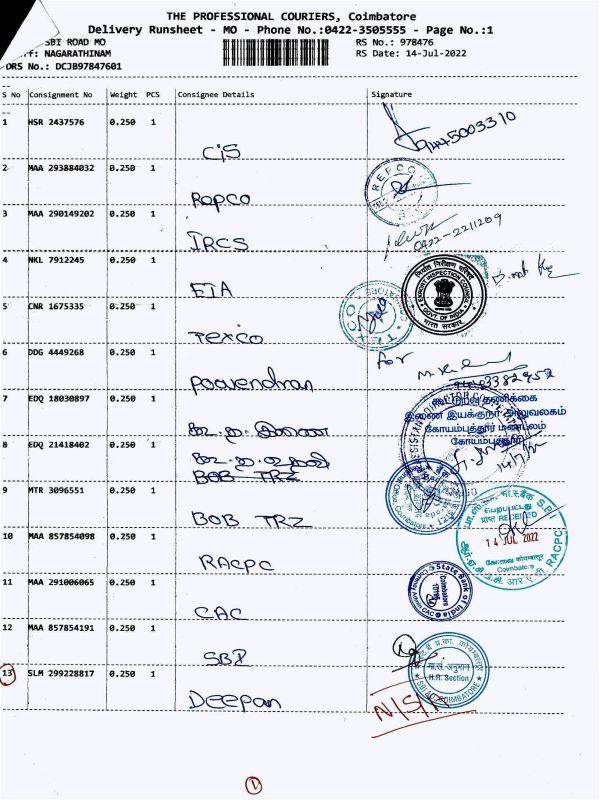 THE PROFESSIONAL COURIERS, Coimbatore
Delivery Runsheet - MO - Phone No.:0422-3505555 - Page No.:1
SBI ROAD MO RS No.: 978476
f: NAGARATHINAM RS Date: 14-Jul-2022
DRS No.: DCJB97847601
S No Consignment No Weight PCS Consignee Details Signature
1 HSR 2437576 0.250 1
CIS 9445003310
2 MAA 293884032 0.250 1
Repco REPCO
3 MAA 290149202 0.250 1
IRCS 0422-2211209
4 NKL 7912245 0.250 1
EIA EXPORT INSPECTION COUNCIL GOVT. OF INDIA भारत सरकार
5 CNR 1675335 0.250 1
Texco TEXCO COIMBATORE
6 DDG 4449268 0.250 1 for
Poovendran
7 EDQ 18030897 0.250 1 கூட்டுறவு தணிக்கை
கூ.த.இணை இணை இயக்குநர் அலுவலகம்
கோயம்புத்தூர் மண்டலம்
8 EDQ 21418402 0.250 1 கோயம்புத்தூர்
கூ.த.உதவி
BOB TRZ
9 MTR 3096551 0.250 1
BOB TRZ
பெறப்பட்டது
प्राप्त RECEIVED
10 MAA 857854098 0.250 1 14 JUL 2022
RACPC Coimbatore
RACPC
11 MAA 291006065 0.250 1 State Bank of India
CAC Coimbatore CAC
12 MAA 857854191 0.250 1
SBI मा.सं. अनुभाग
H.R. Section
13 SLM 299228817 0.250 1 COIMBATORE
Deepan N/S/R
1